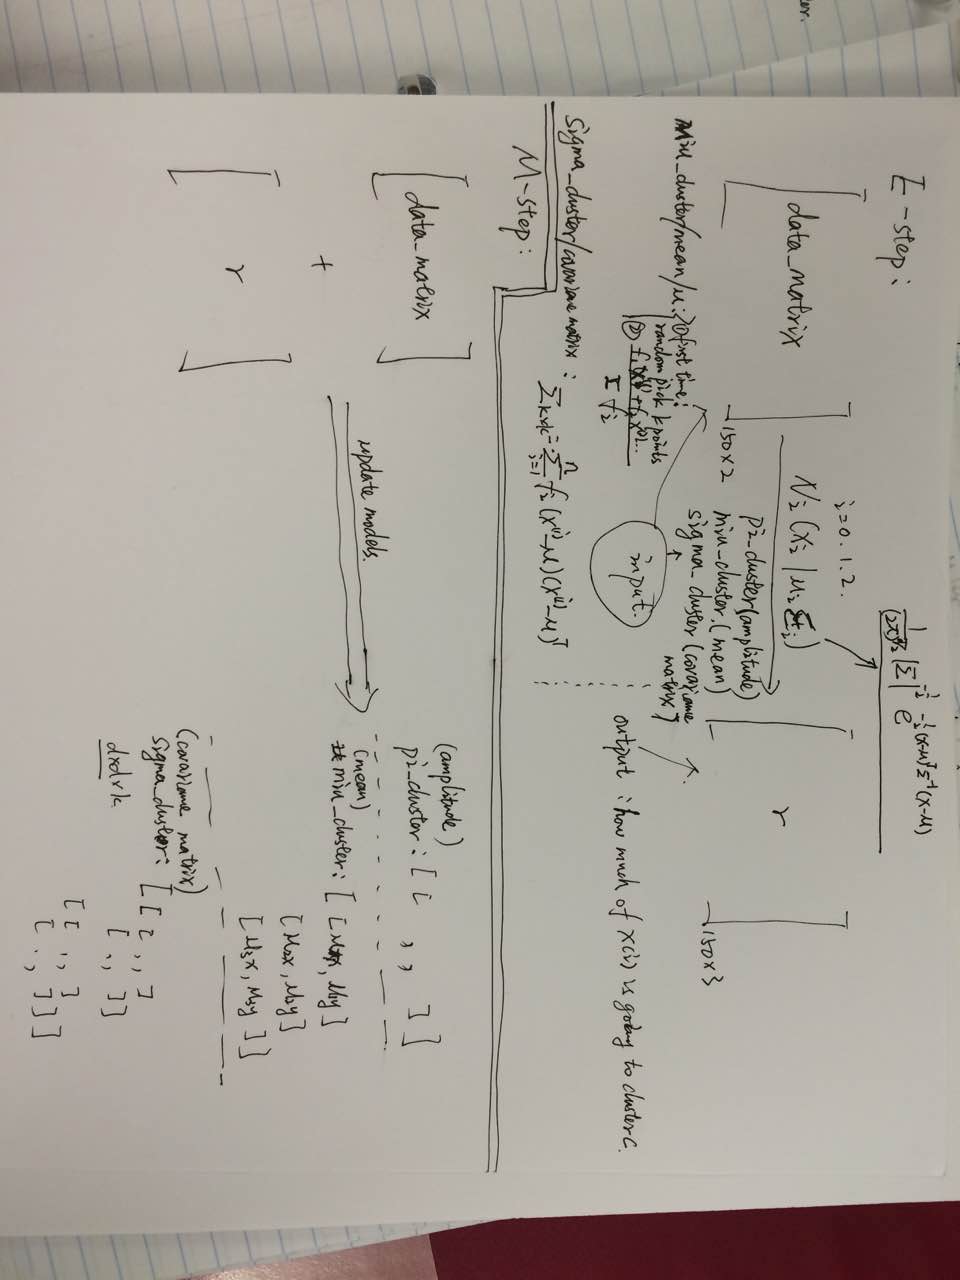 E-step:
data_matrix
150 x 2
i=0.1.2.
N_i (x_i | μ_i Σ_i)
1/(2π)^{d/2} |Σ|^{-1/2} e^{-1/2(x-μ)^T Σ^{-1}(x-μ)}
pi_cluster (amplitude)
miu_cluster. (mean)
sigma_cluster (covariance matrix)
r
150 x 3
input.
output : how much of x(i) is going to cluster c.
miu_cluster/mean/μ:
① first time:
random pick k points
②
sigma_cluster/covariance matrix :
Σkxk = Σ_{i=1}^{n} f_i (x^{(i)}-μ)(x^{(i)}-μ)^T
M-step:
data_matrix
+
r
update models.
(amplitude)
pi_cluster : [ [ , , ] ]
(mean)
miu_cluster: [ [ , μ1y ]
[ μ2x, μ2y ]
[ μ3x, μ3y ] ]
(covariance matrix)
sigma_cluster: [ [ [ . , ]
[ . , ] ]
[ [ . , ]
[ . , ] ] ]
dxdxk